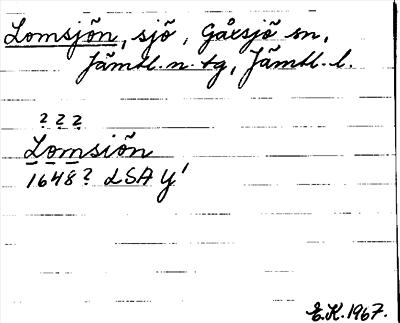 Lomsjön, sjö, Gåxsjö sn,
Jämtl. n. tg, Jämtl. l.
? ? ?
Lomsiön
1648? LSA Y'
E.K. 1967.